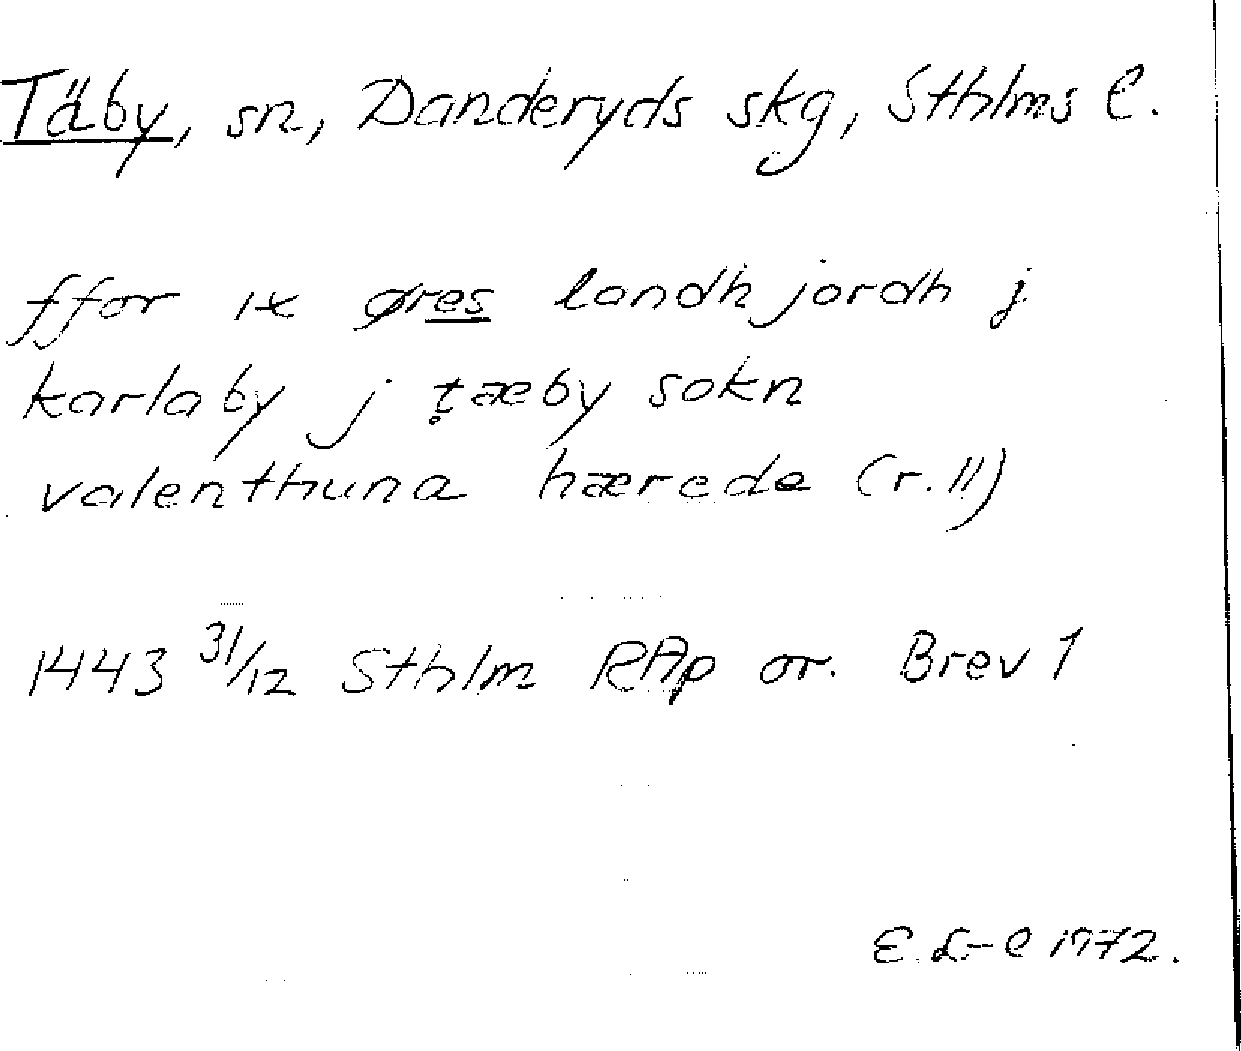 Täby, sn, Danderyds skg, Sthlms l.
ffor ix øres landh jordh j
karlaby j tæby sokn
valenthuna hærede (r. 11)
1443 31/12 Sthlm RAp or. Brev 1
E. L-l 1972.